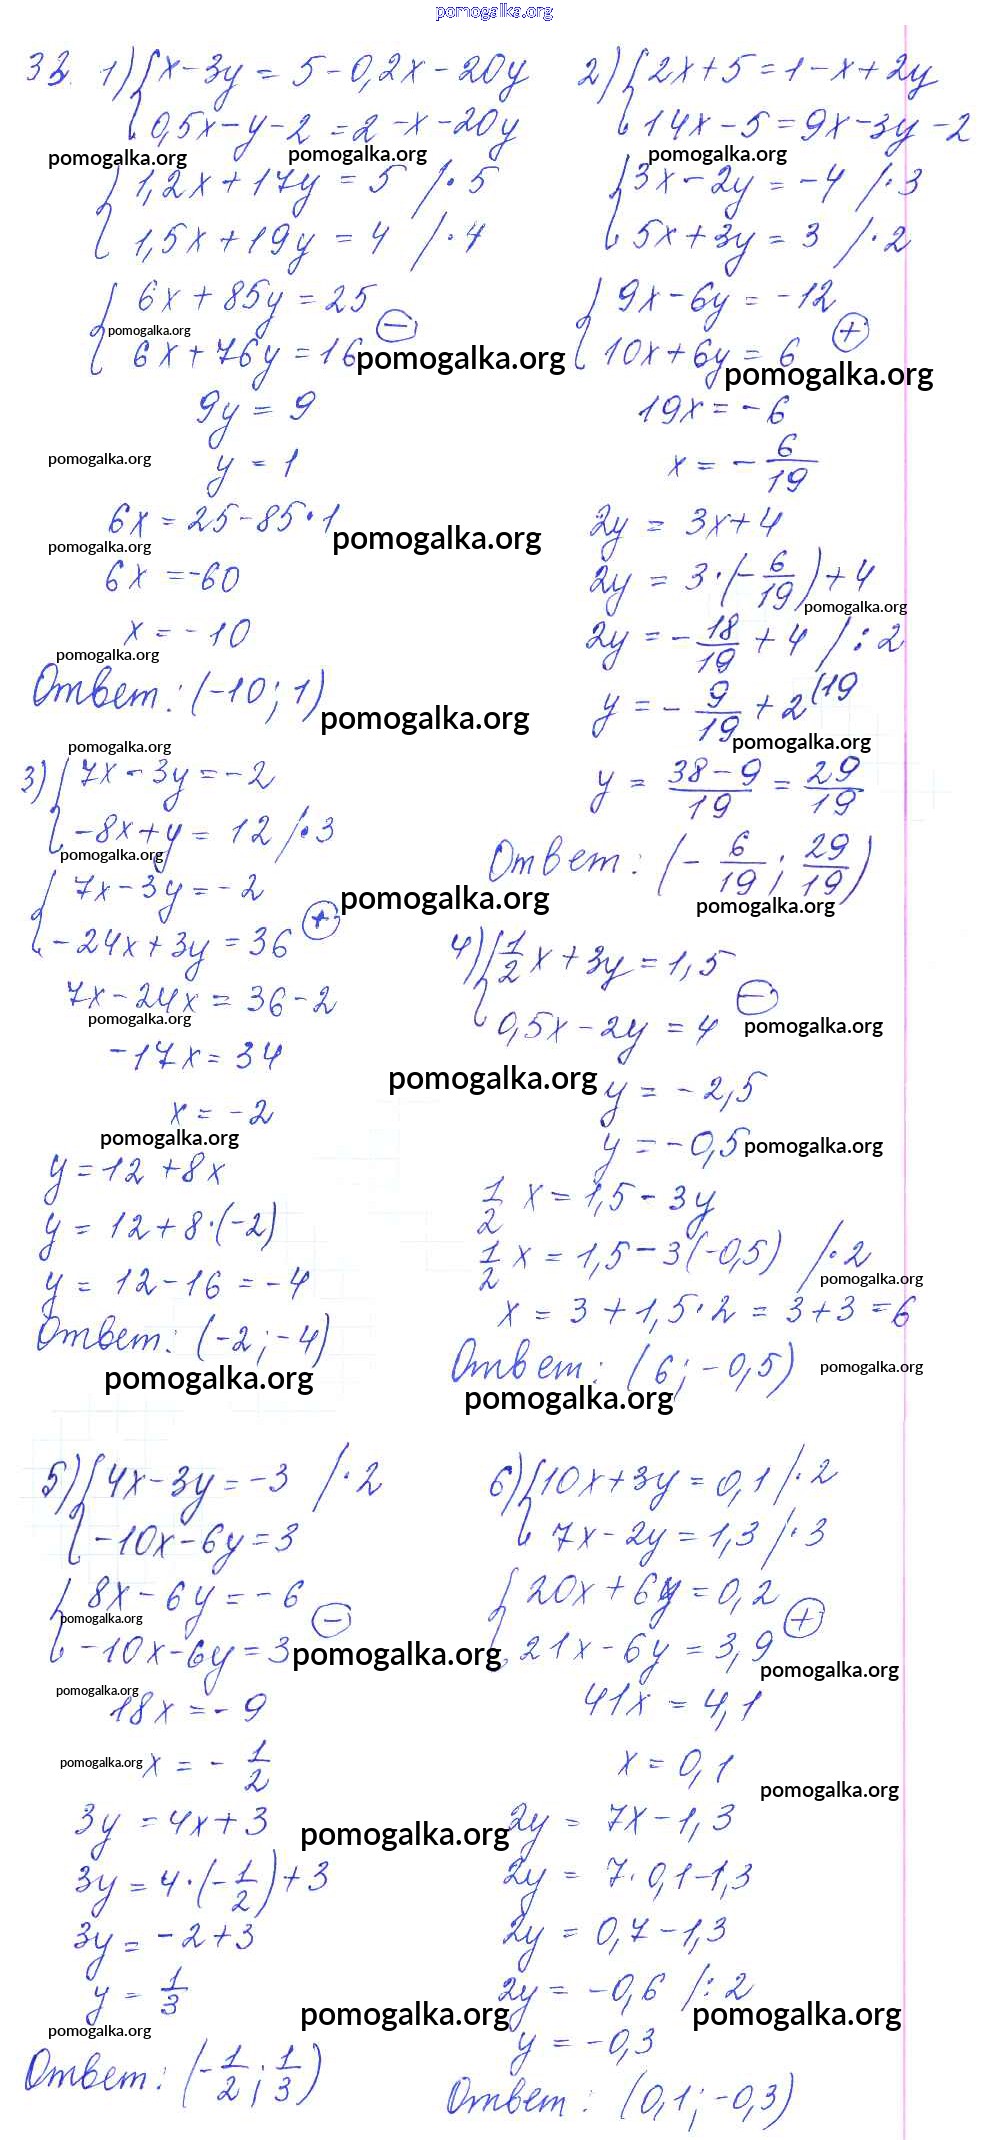 pomogalka.org
33. 1) { x - 3y = 5 - 0,2x - 20y
0,5x - y - 2 = 2 - x - 20y
pomogalka.org pomogalka.org
{ 1,2x + 17y = 5 /·5
1,5x + 19y = 4 /·4
{ 6x + 85y = 25
pomogalka.org
6x + 76y = 16 (−)
pomogalka.org
9y = 9
pomogalka.org
y = 1
6x = 25 - 85·1
pomogalka.org
pomogalka.org
6x = -60
x = -10
pomogalka.org
Ответ: (-10; 1)
pomogalka.org
2) { 2x + 5 = 1 - x + 2y
14x - 5 = 9x - 3y - 2
pomogalka.org
{ 3x - 2y = -4 /·3
5x + 3y = 3 /·2
{ 9x - 6y = -12
10x + 6y = 6 (+)
pomogalka.org
19x = -6
x = - 6/19
2y = 3x + 4
2y = 3·(- 6/19) + 4
pomogalka.org
2y = - 18/19 + 4 /:2
y = - 9/19 + 2 (19
pomogalka.org
y = 38-9/19 = 29/19
Ответ: (- 6/19; 29/19)
pomogalka.org
pomogalka.org
3) { 7x - 3y = -2
-8x + y = 12 /·3
pomogalka.org
{ 7x - 3y = -2
-24x + 3y = 36 (+)
pomogalka.org
7x - 24x = 36 - 2
pomogalka.org
-17x = 34
x = -2
pomogalka.org
y = 12 + 8x
y = 12 + 8·(-2)
y = 12 - 16 = -4
Ответ: (-2; -4)
pomogalka.org
4) { 1/2 x + 3y = 1,5
0,5x - 2y = 4 (−)
pomogalka.org
pomogalka.org
y = -2,5
y = -0,5
pomogalka.org
1/2 x = 1,5 - 3y
1/2 x = 1,5 - 3(-0,5) /·2
pomogalka.org
x = 3 + 1,5·2 = 3 + 3 = 6
Ответ: (6; -0,5)
pomogalka.org
pomogalka.org
5) { 4x - 3y = -3 /·2
-10x - 6y = 3
{ 8x - 6y = -6
pomogalka.org
-10x - 6y = 3 (−)
pomogalka.org
pomogalka.org
18x = -9
pomogalka.org
x = - 1/2
3y = 4x + 3
pomogalka.org
3y = 4·(- 1/2) + 3
3y = -2 + 3
y = 1/3
pomogalka.org
pomogalka.org
Ответ: (- 1/2; 1/3)
6) { 10x + 3y = 0,1 /·2
7x - 2y = 1,3 /·3
{ 20x + 6y = 0,2
21x - 6y = 3,9 (+)
pomogalka.org
41x = 4,1
x = 0,1
pomogalka.org
2y = 7x - 1,3
2y = 7·0,1 - 1,3
2y = 0,7 - 1,3
2y = -0,6 /:2
pomogalka.org
y = -0,3
Ответ: (0,1; -0,3)